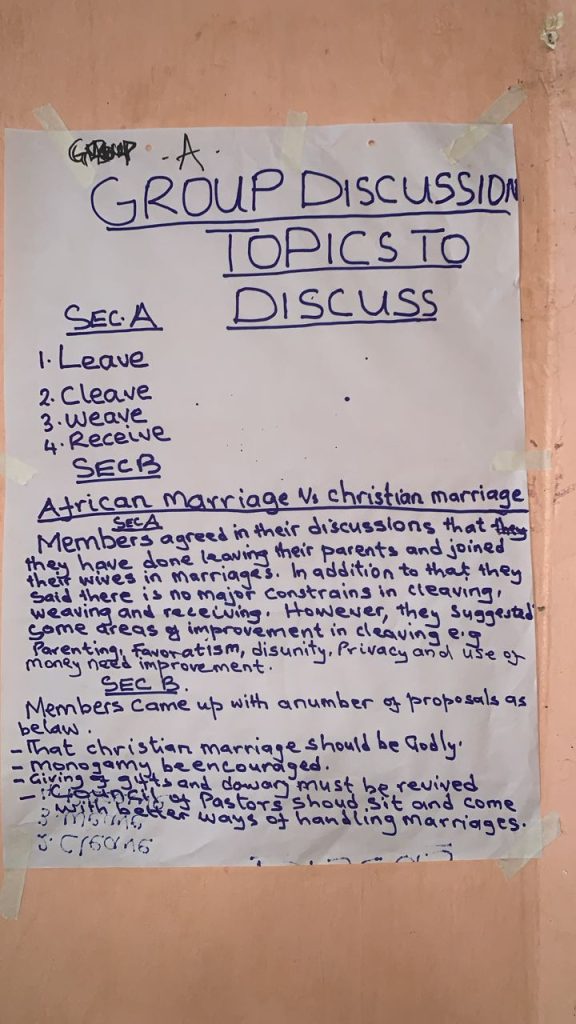 GROUP - A -
GROUP DISCUSSION
TOPICS TO
DISCUSS
SEC. A
1. Leave
2. Cleave
3. weave
4. Receive
SEC B
African marriage Vs christian marriage
SEC A
Members agreed in their discussions that they
they have done leaving their parents and joined
their wives in marriages. In addition to that they
said there is no major constrains in cleaving,
weaving and receiving. However, they suggested
some areas of improvement in cleaving e.g
Parenting, Favoratism, disunity, Privacy and use of
money need improvement.
SEC B.
Members came up with anumber of proposals as
belaw.
- That christian marriage should be Godly.
- Monogamy be encouraged.
- Giving of gifts and dowary must be revived
- Council of Pastors shoud sit and come
with better ways of handling marriages.